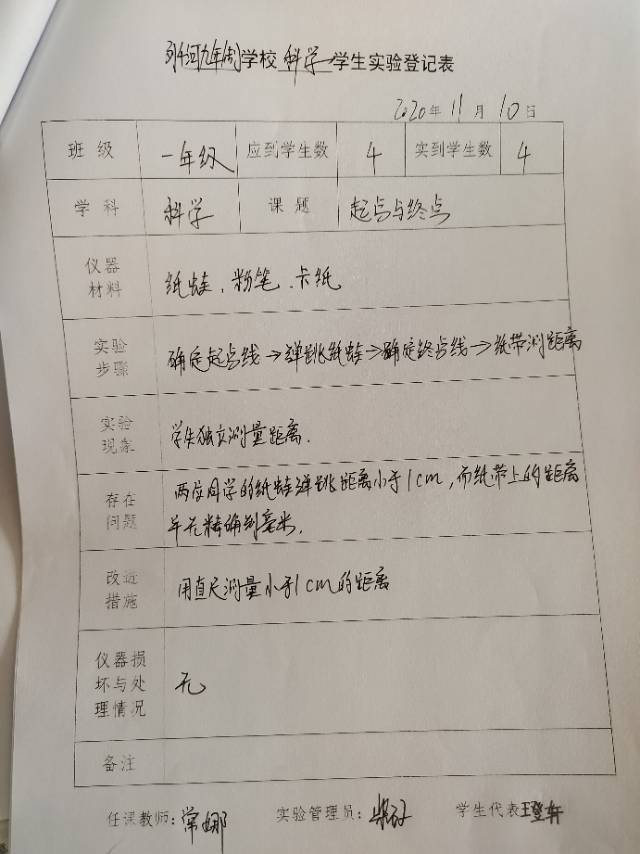 九年制学校 科学 学生实验登记表
2020年 11月 10日
班级 一年级 应到学生数 4 实到学生数 4
学科 科学 课题 起点与终点
仪器
材料
纸蛙、粉笔、卡纸
实验
步骤
确定起点线→弹跳纸蛙→确定终点线→纸带测距离
实验
现象
学生独立测量距离.
存在
问题
两位同学的纸蛙弹跳距离小于1cm,而纸带上的距离
并无精确到毫米.
改进
措施
用直尺测量小于1cm的距离
仪器损
坏与处
理情况
无
备注
任课教师:常娜 实验管理员: 学生代表